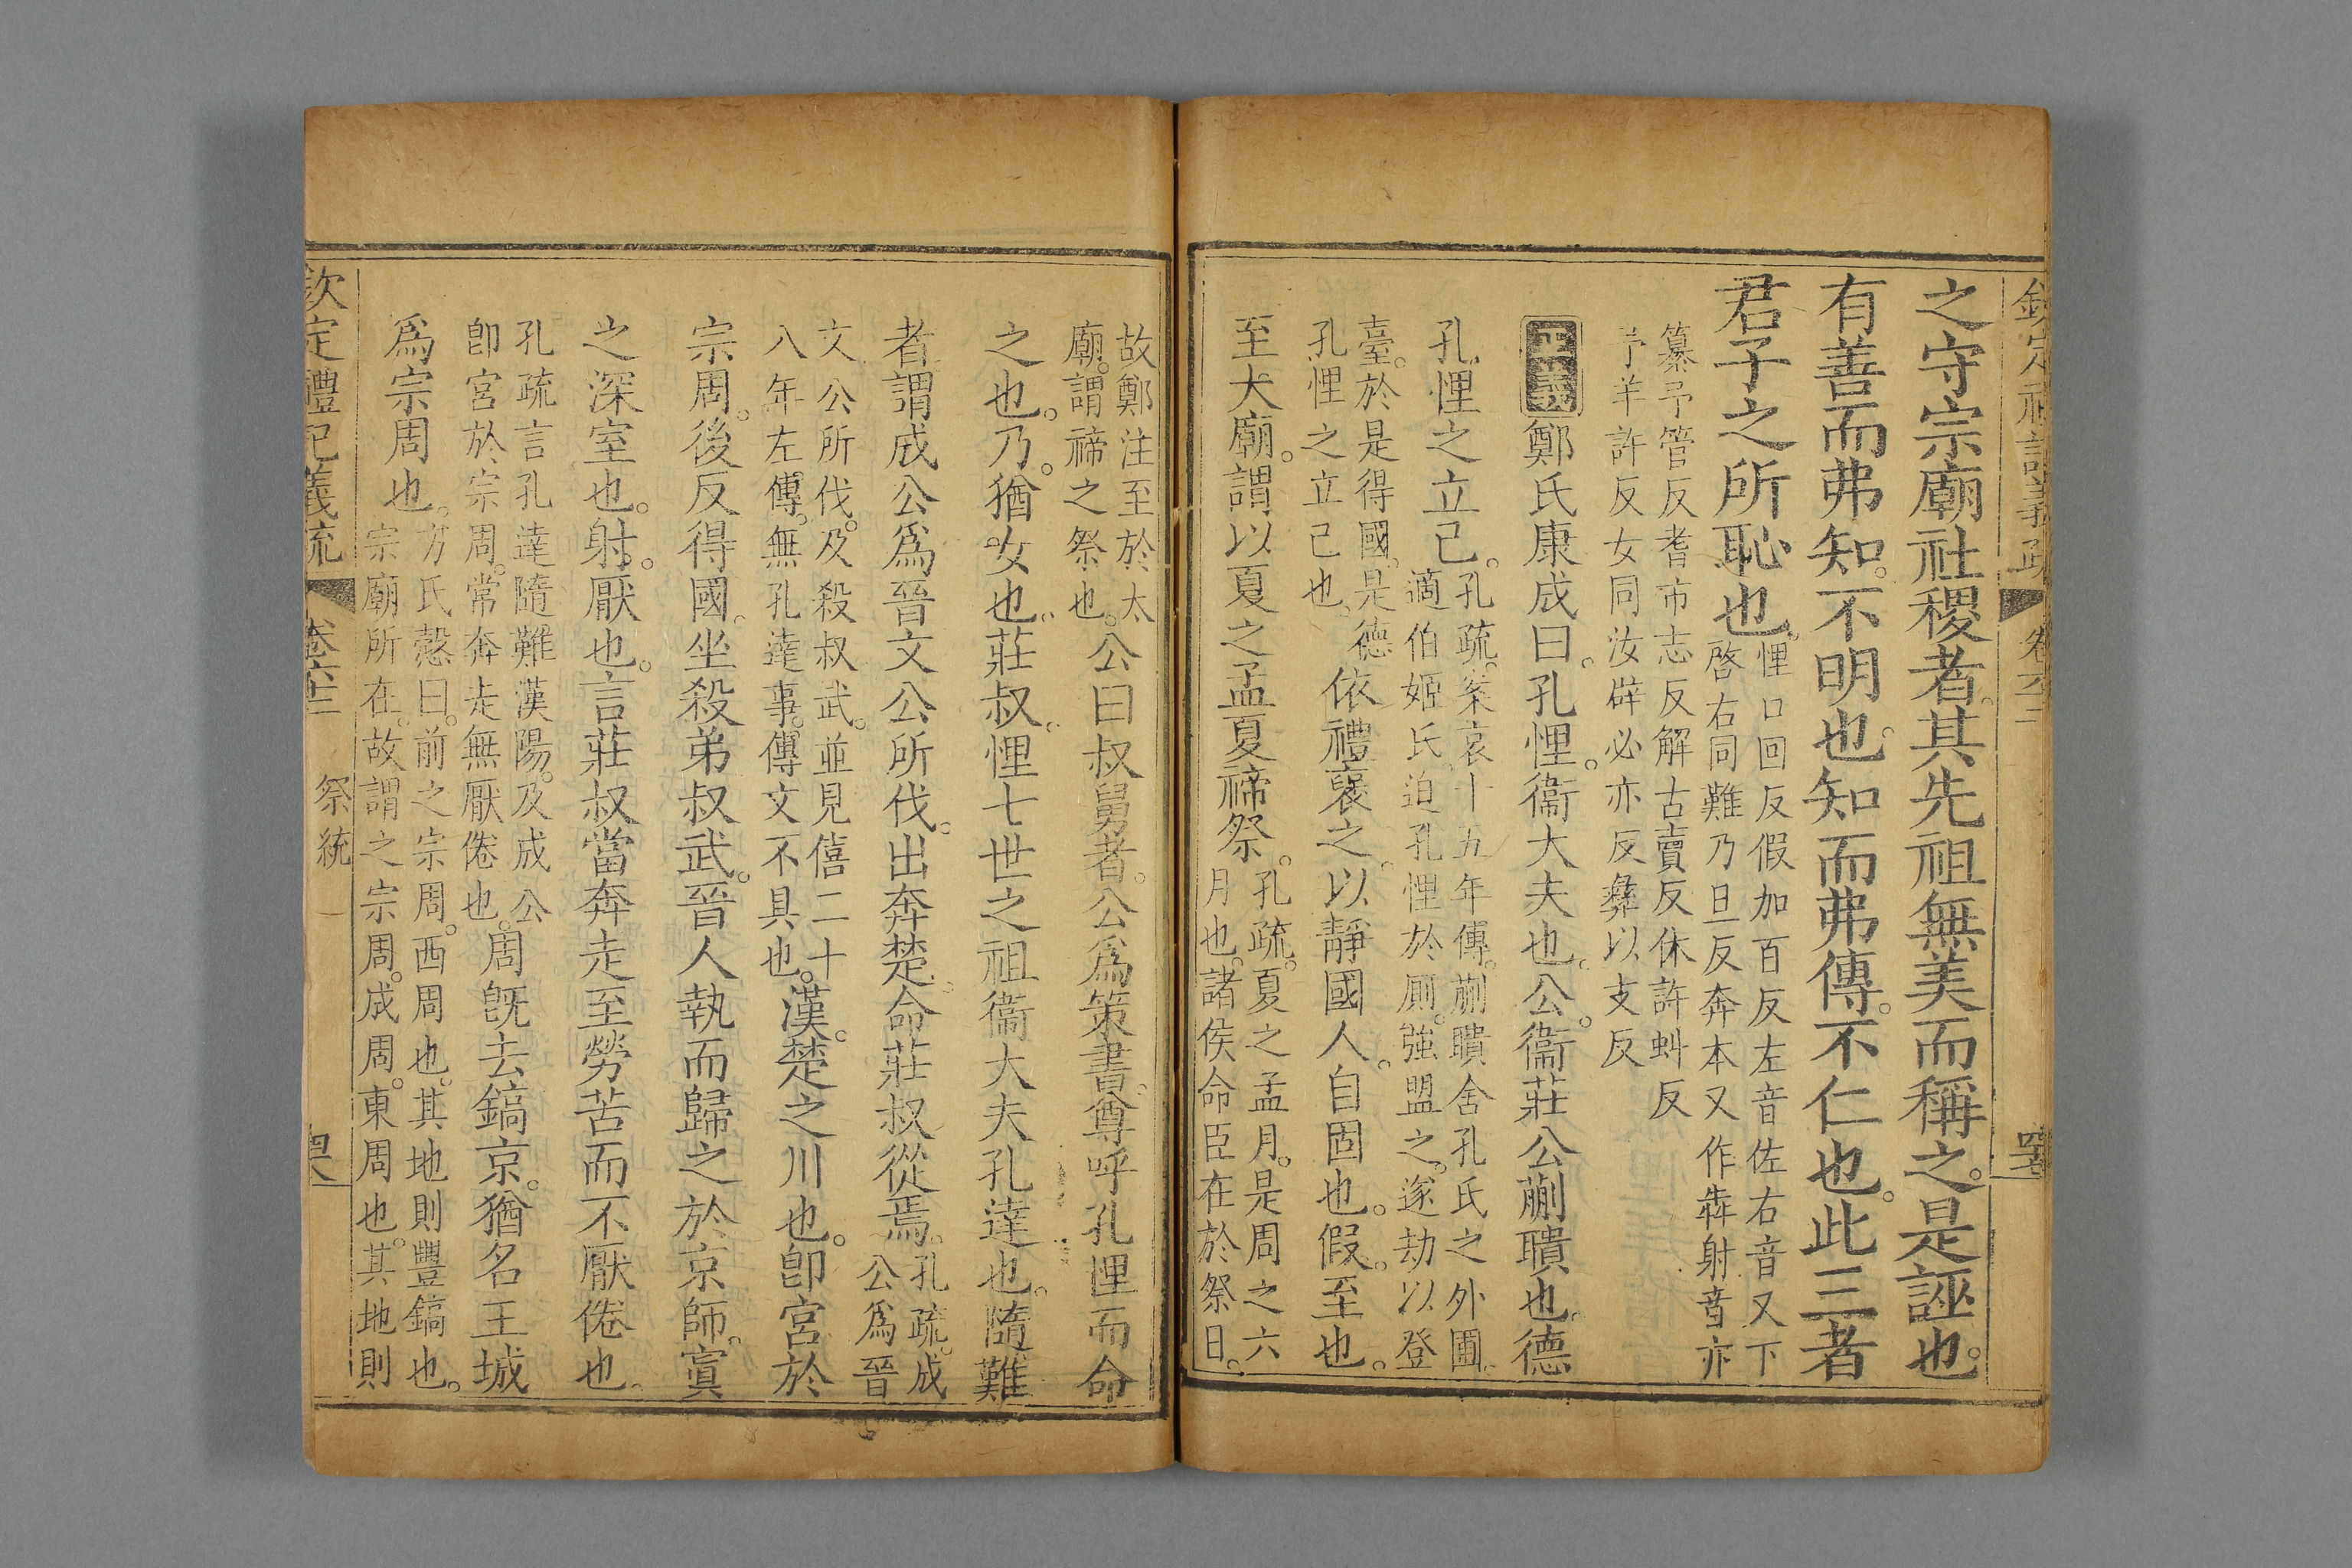 欽定禮記義疏 卷六十二
之守宗廟社稷者其先祖無美而稱之是誣也
有善而弗知不明也知而弗傳不仁也此三者
君子之所恥也悝口回反假加百反左音佐右音又下
啓右同難乃旦反奔本又作犇射音亦
纂子管反耆市志反解古賣反休許蚪反
予羊許反女同汝辟必亦反彝以支反
正義鄭氏康成曰孔悝衞大夫也公衞莊公蒯聵也德
孔悝之立己孔疏案哀十五年傳蒯聵舍孔氏之外圃
適伯姬氏迫孔悝於厠強盟之遂劫以登
臺於是得國是德
孔悝之立己也依禮襃之以靜國人自固也假至也
至大廟謂以夏之孟夏禘祭孔疏夏之孟月是周之六
月也諸侯命臣在於祭日
故鄭注至於太
廟謂禘之祭也公曰叔舅者公爲策書尊呼孔悝而命
之也乃猶女也莊叔悝七世之祖衞大夫孔達也隨難
者謂成公爲晉文公所伐出奔楚命莊叔從焉孔疏成
公爲晉
文公所伐及殺叔武並見僖二十
八年左傳無孔達事傳文不具也漢楚之川也卽宮於
宗周後反得國坐殺弟叔武晉人執而歸之於京師寘
之深室也射厭也言莊叔當奔走至勞苦而不厭倦也
孔疏言孔達隨難漢陽及成公
卽宮於宗周常奔走無厭倦也周旣去鎬京猶名王城
爲宗周也方氏慤曰前之宗周西周也其地則豐鎬也
宗廟所在故謂之宗周成周東周也其地則
欽定禮記義疏 卷六十二 祭統